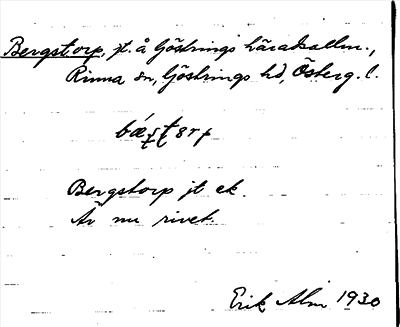 Bergstorp, jt. å Göstrings häradsallm.,
Rinna sn, Göstrings hd, Österg. l.
bæṣṭɛrp
Bergstorp jt ek.
Är nu rivet.
Erik Alm 1930